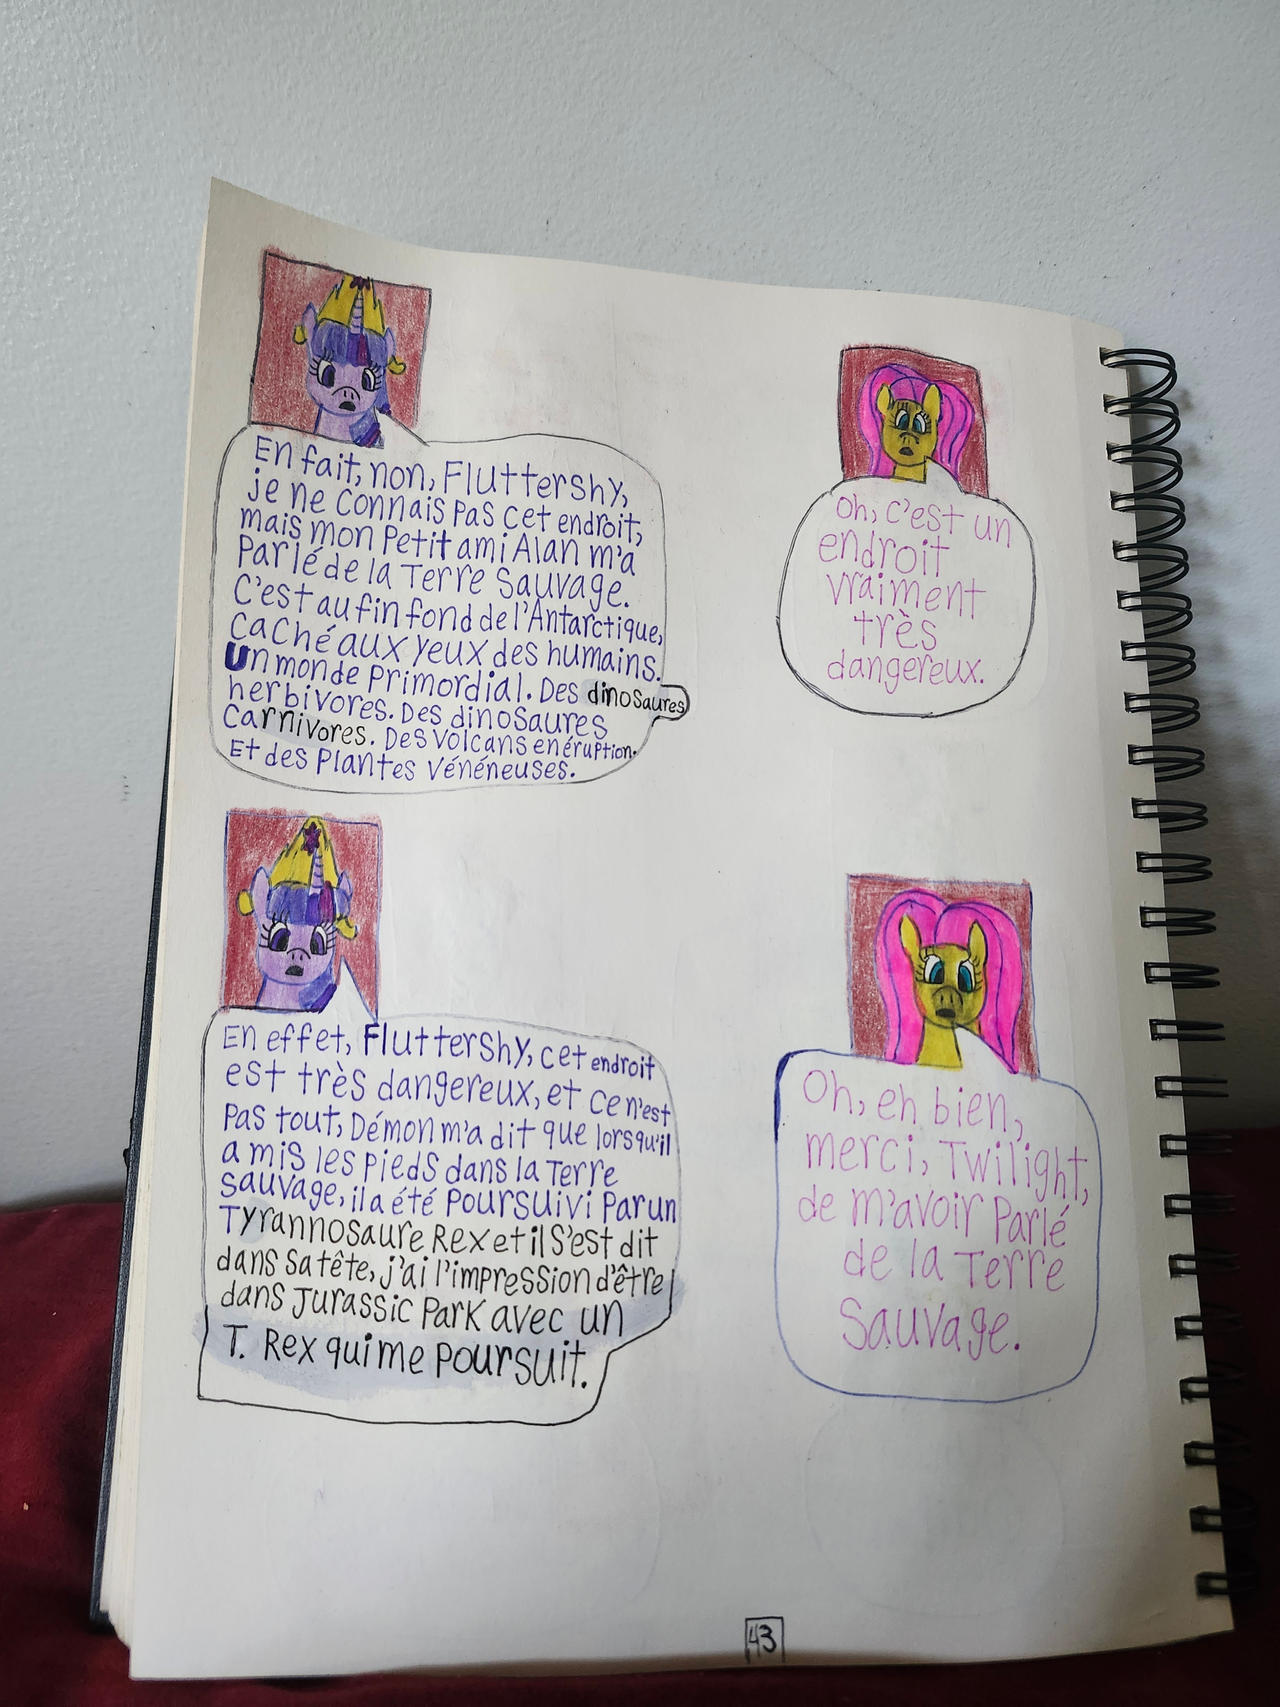 En fait, non, Fluttershy,
je ne connais pas cet endroit,
mais mon petit ami Alan m'a
parlé de la Terre Sauvage.
C'est au fin fond de l'Antarctique,
caché aux yeux des humains.
Un monde primordial. Des dinosaures
herbivores. Des dinosaures
carnivores. Des volcans en éruption.
Et des plantes vénéneuses.
Oh, c'est un
endroit
vraiment
très
dangereux.
En effet, Fluttershy, cet endroit
est très dangereux, et ce n'est
pas tout, Démon m'a dit que lorsqu'il
a mis les pieds dans la Terre
Sauvage, il a été poursuivi par un
Tyrannosaure Rex et il s'est dit
dans sa tête, j'ai l'impression d'être
dans Jurassic Park avec un
T. Rex qui me poursuit.
Oh, eh bien,
merci, Twilight,
de m'avoir parlé
de la Terre
Sauvage.
43